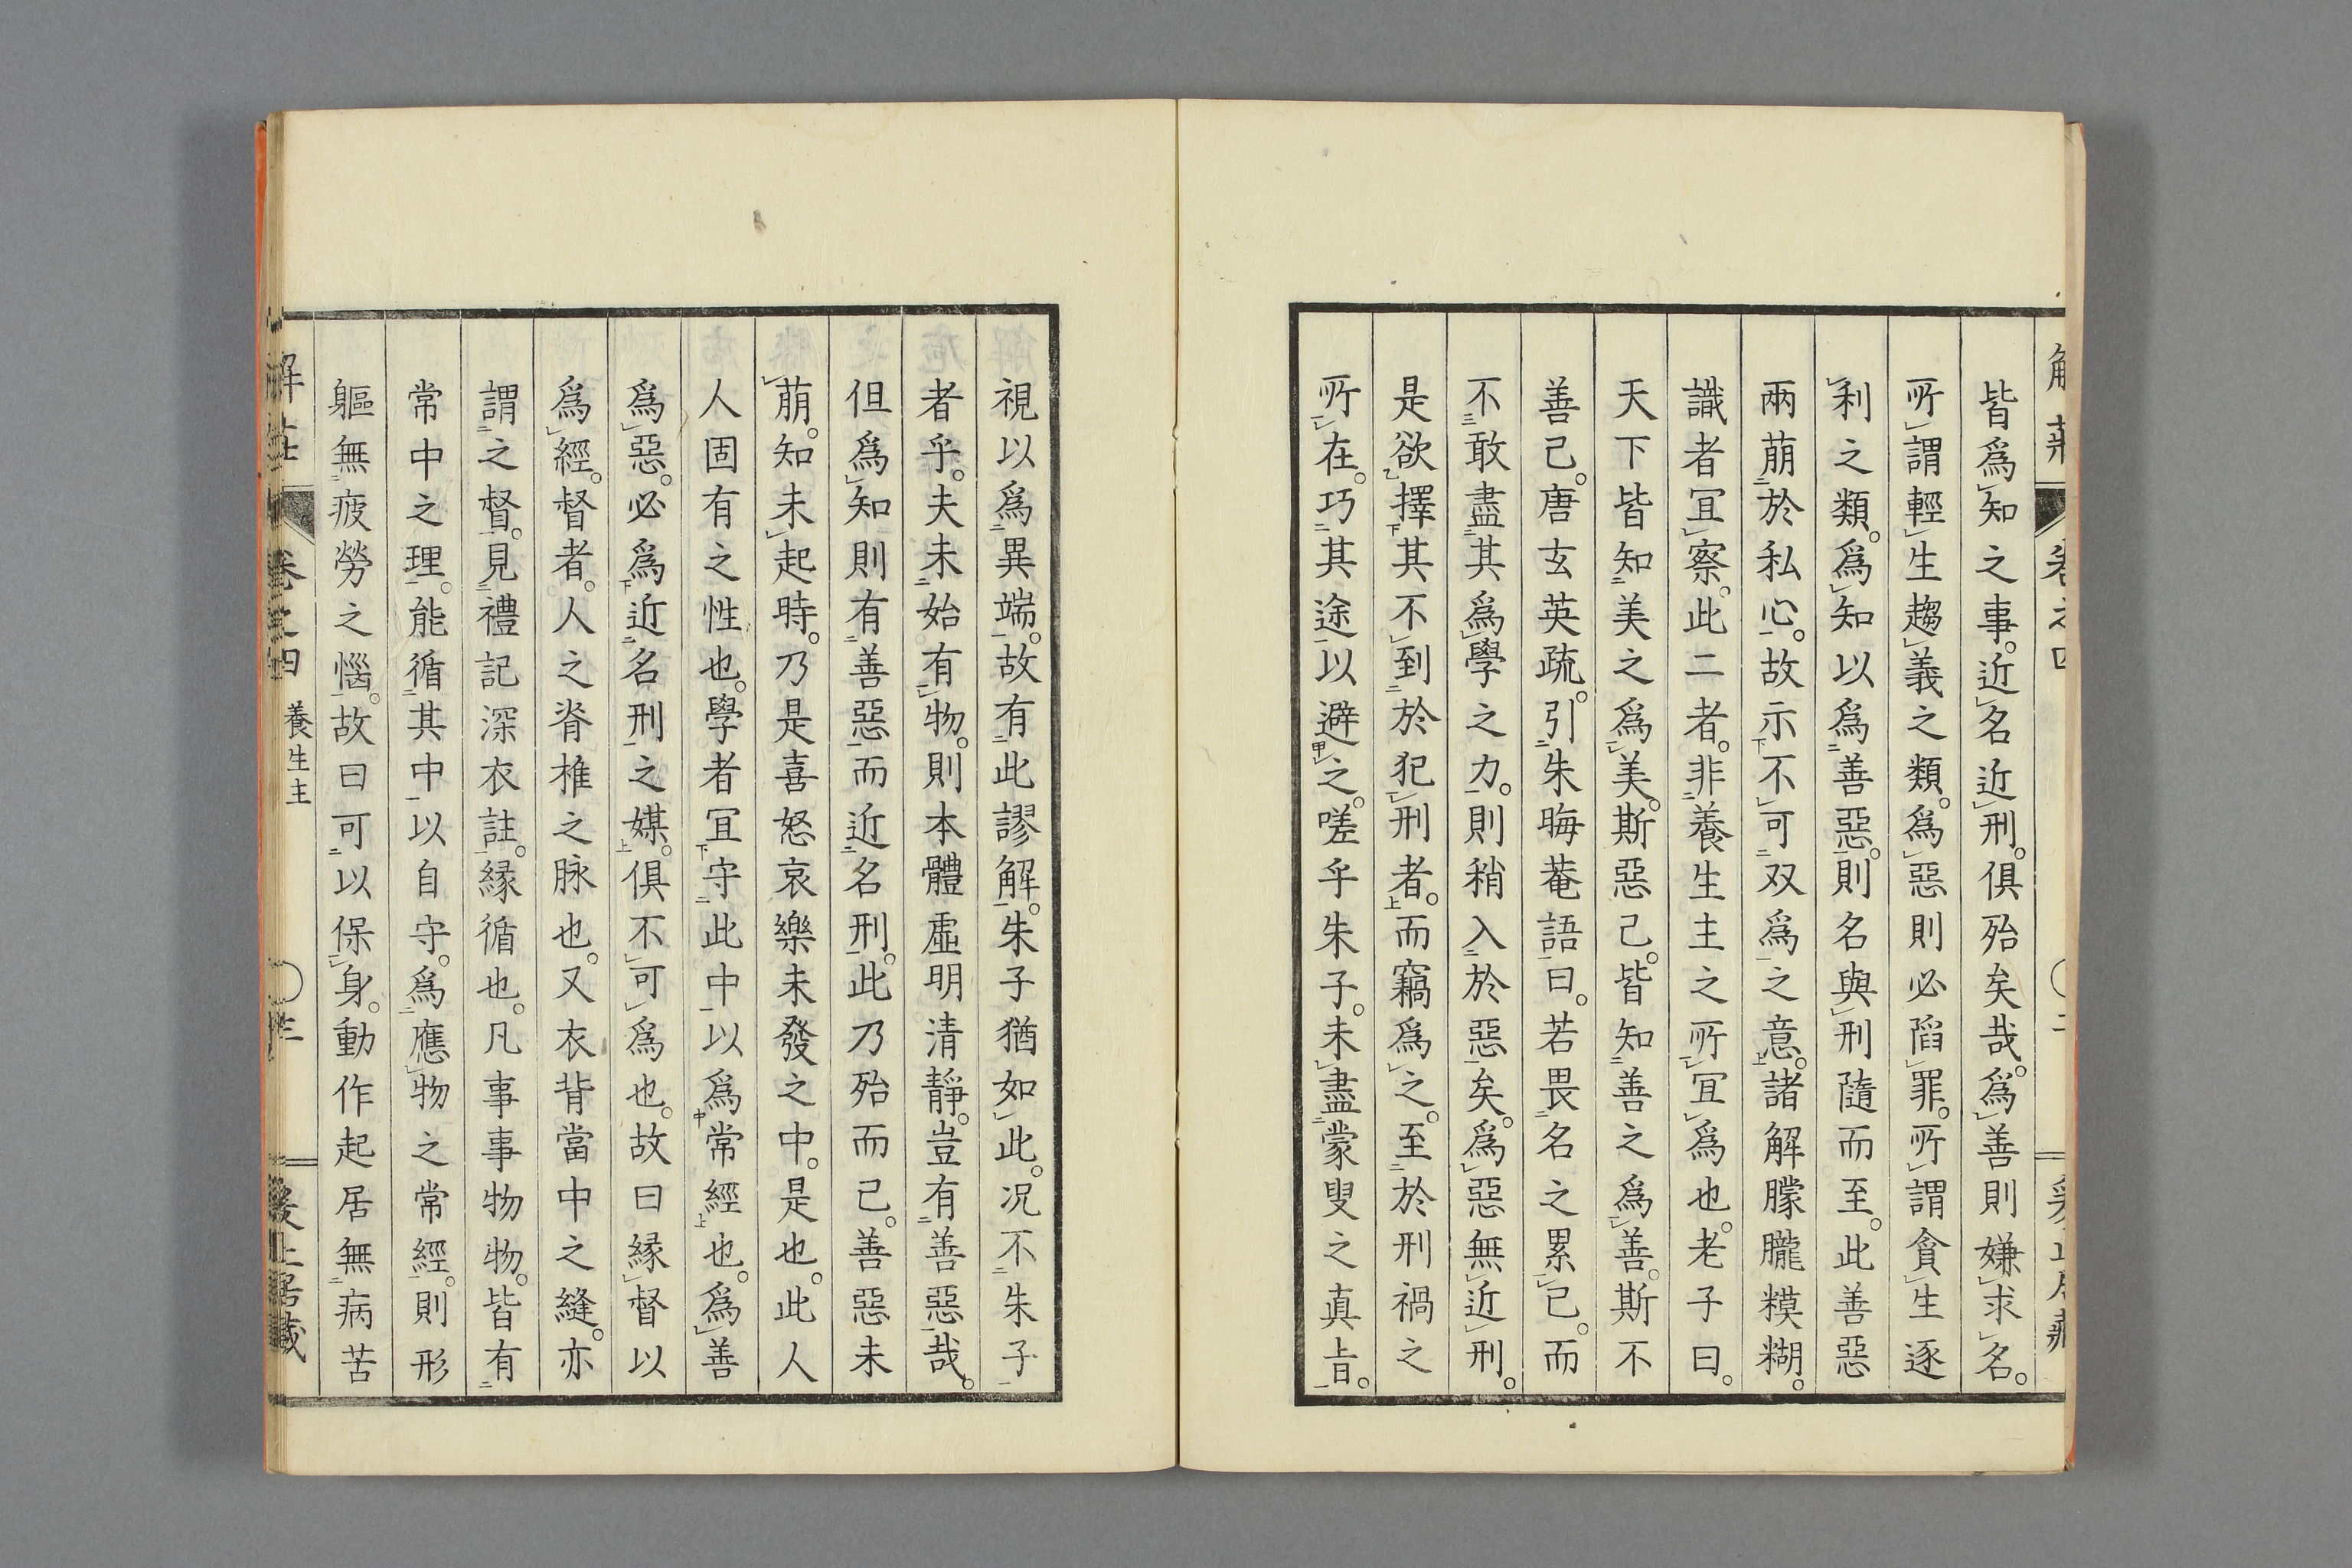 皆爲知之事。近名近刑。俱殆矣哉。爲善則嫌求名。
所謂輕生趨義之類。爲惡則必䧟罪。所謂貪生逐
利之類。爲知以爲善惡。則名與刑隨而至。此善惡
兩萠於私心。故示不可双爲之意。諸解朦朧糢糊。
識者冝察。此二者。非養生主之所冝爲也。老子曰。
天下皆知美之爲美。斯惡已。皆知善之爲善。斯不
善已。唐玄英疏。引朱晦菴語曰。若畏名之累已。而
不敢盡其爲學之力。則稍入於惡矣。爲惡無近刑。
是欲擇其不到於犯刑者。而竊爲之。至於刑禍之
所在。巧其途以避之。嗟乎朱子。未盡蒙叟之真㫖。
視以爲異端。故有此謬解。朱子猶如此。况不朱子
者乎。夫未始有物。則本體虛明清靜。豈有善惡哉。
但爲知則有善惡而近名刑。此乃殆而已。善惡未
萠。知未起時。乃是喜怒哀樂未發之中。是也。此人
人固有之性也。學者冝守此中以爲常經也。爲善
爲惡。必爲近名刑之媒。俱不可爲也。故曰緣督以
爲經。督者。人之脊椎之脉也。又衣背當中之縫。亦
謂之督。見禮記深衣註。緣循也。凡事事物物。皆有
常中之理。能循其中以自守。爲應物之常經。則形
軀無疲勞之惱。故曰可以保身。動作起居無病苦
卷之四 養生主